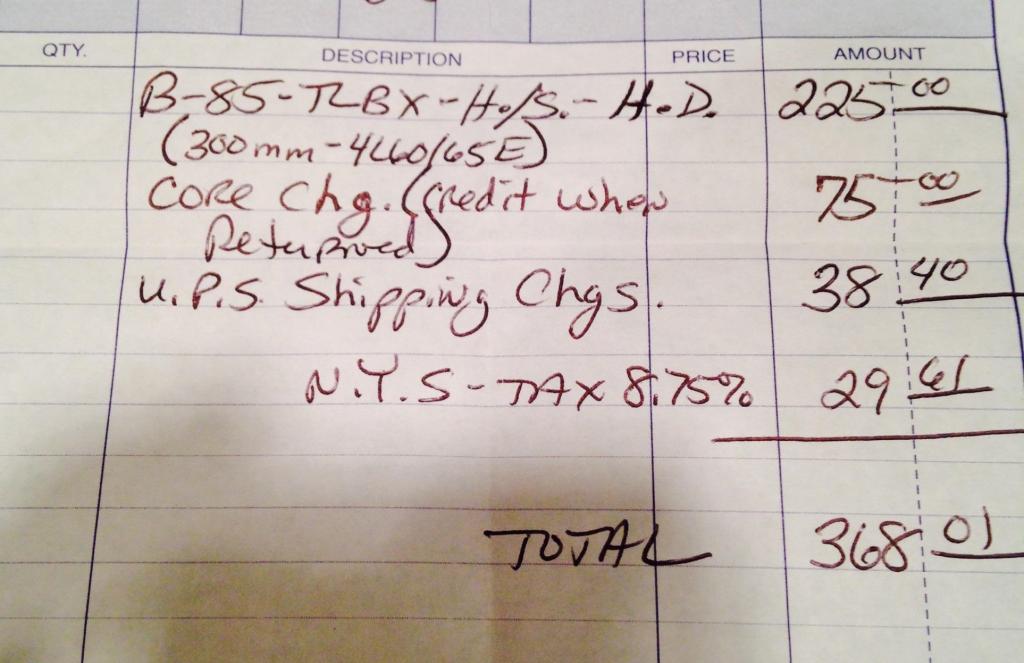 QTY. DESCRIPTION PRICE AMOUNT
B-85-TLBX-H./S.-H.D. 225 00
(300mm-4L60/65E)
Core Chg. (Credit when 75 00
Returned)
U.P.S. Shipping Chgs. 38 40
N.Y.S-TAX 8.75% 29 61
TOTAL 368 01